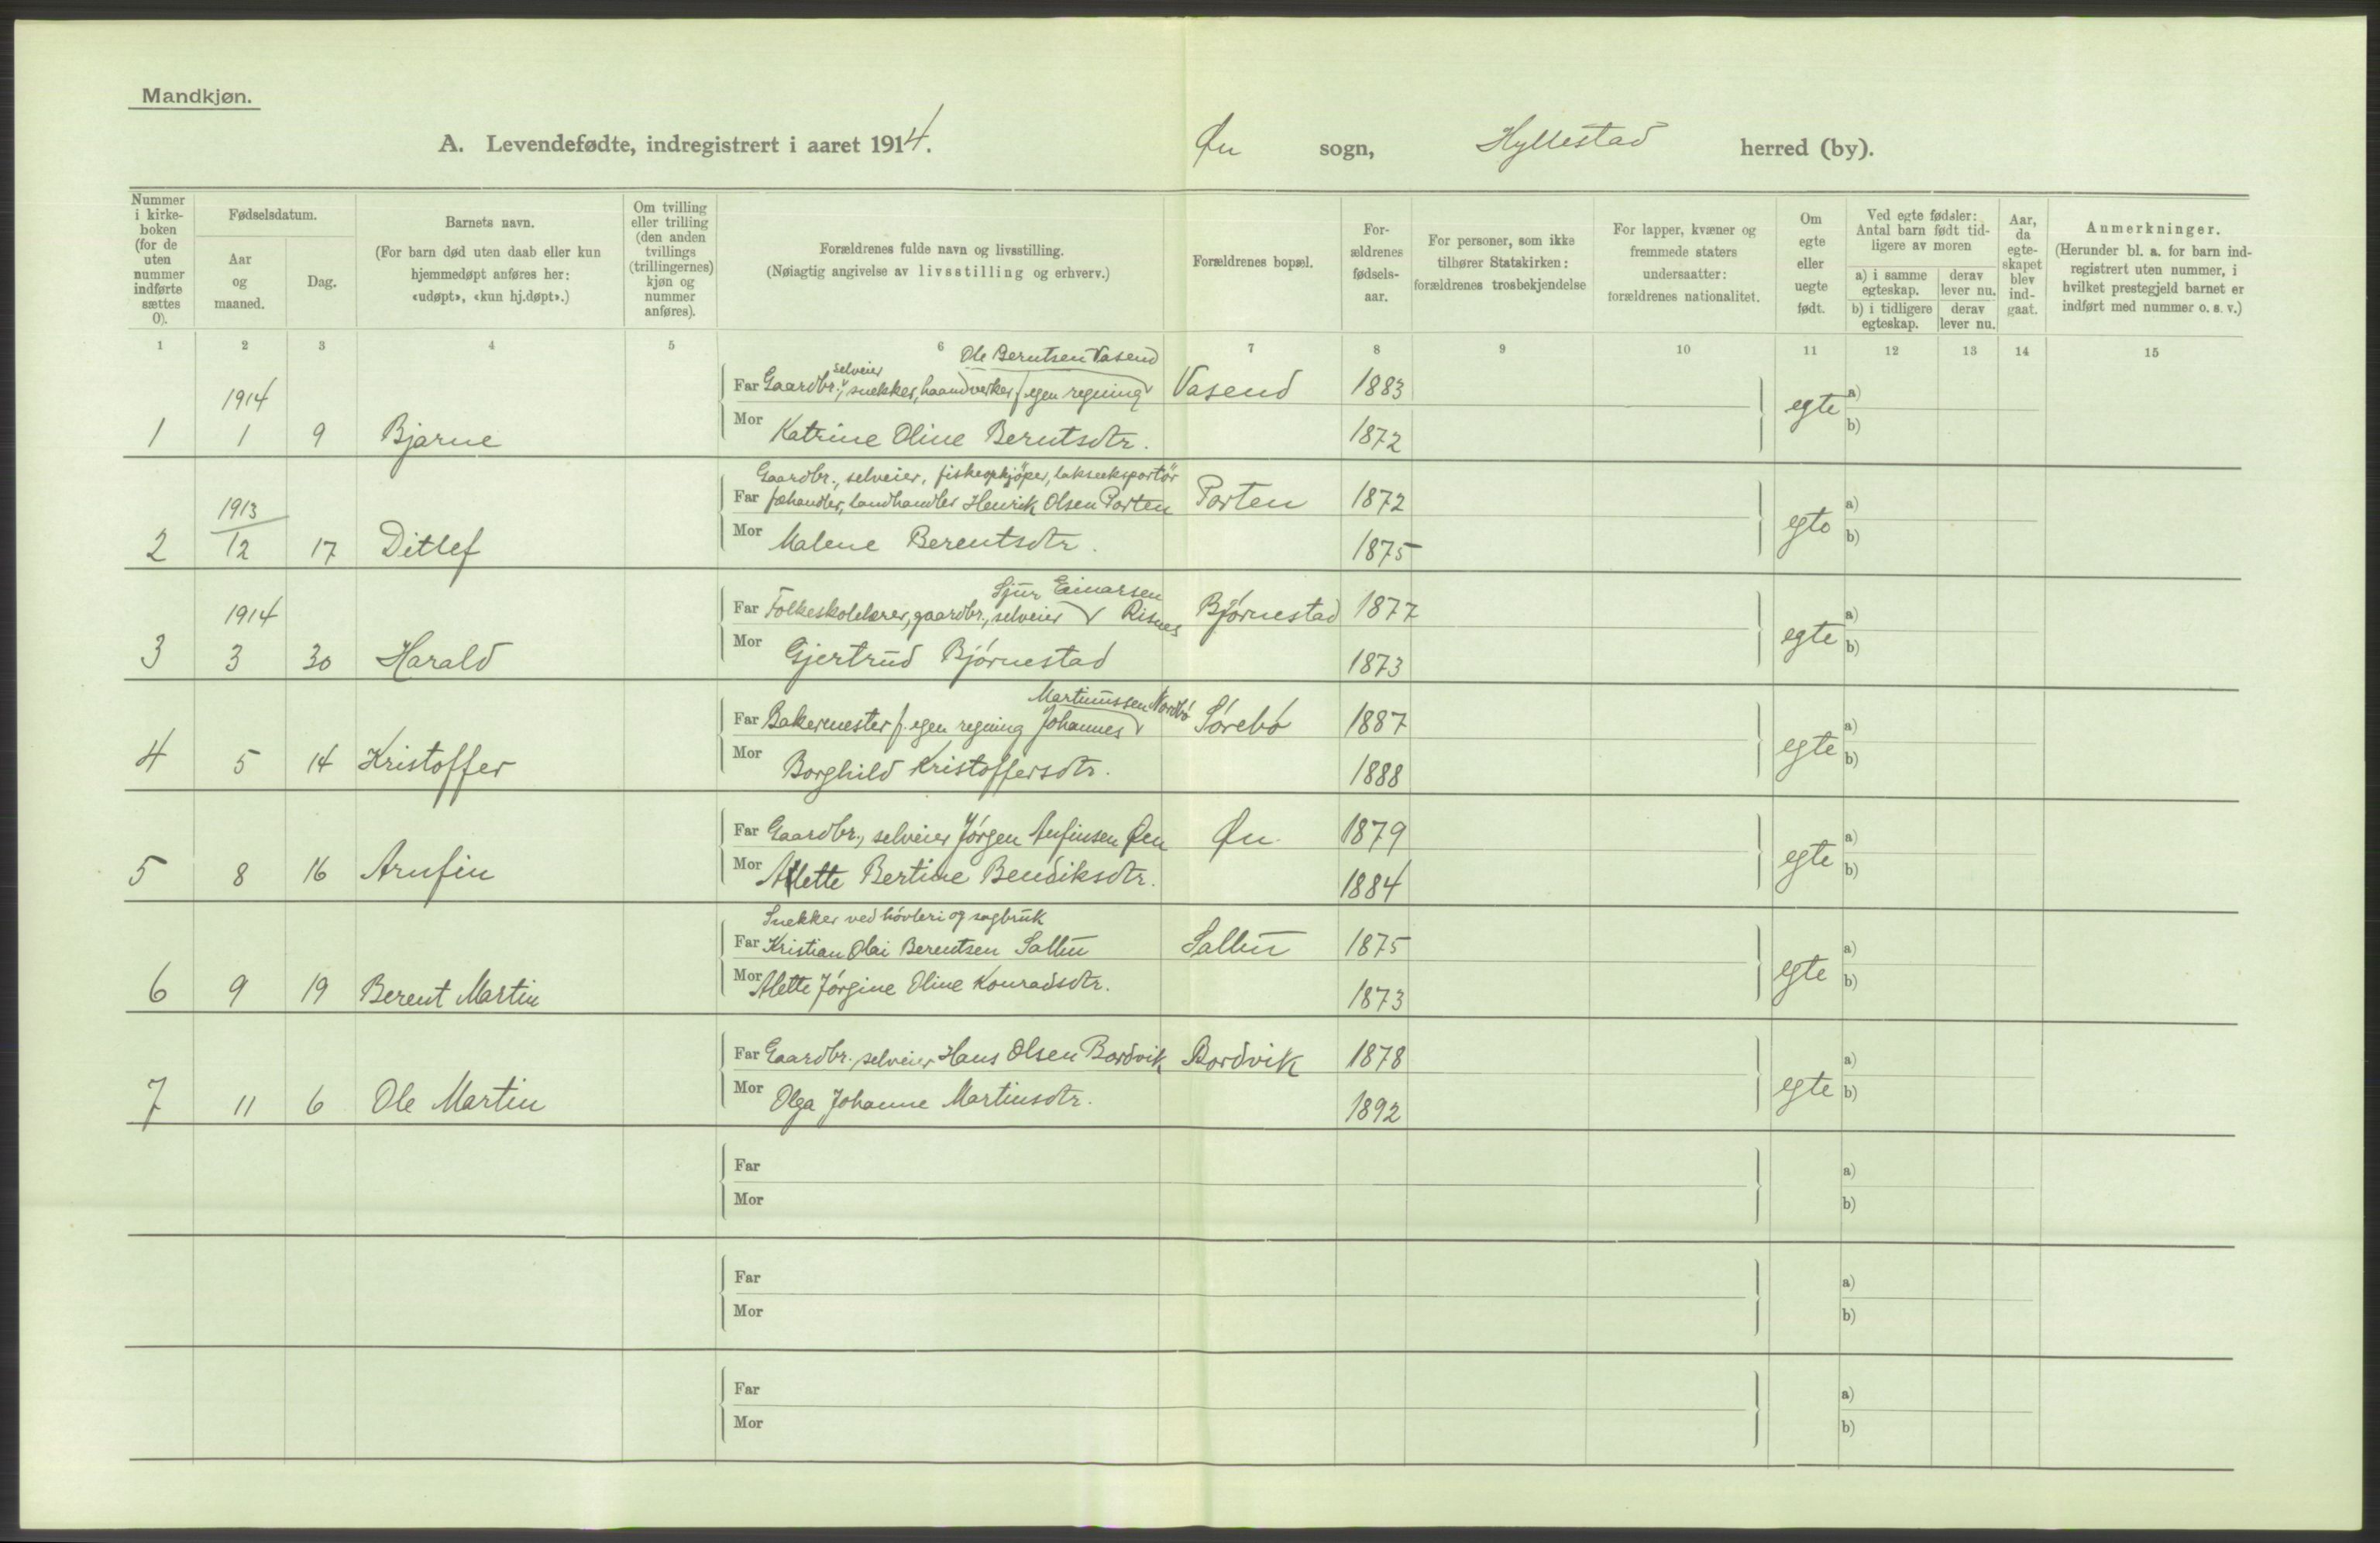 Mandkjøn.
A. Levendefødte, indregistrert i aaret 1914. Øn sogn, Hyllestad herred (by).
Nummer i kirke-boken (for de uten nummer indførte sættes 0).
Fødselsdatum.
Aar og maaned.
Dag.
Barnets navn.
(For barn død uten daab eller kun hjemmedøpt anføres her: «udøpt», «kun hj.døpt».)
Om tvilling eller trilling (den anden tvillings (trillingernes) kjøn og nummer anføres).
Forældrenes fulde navn og livsstilling.
(Nøiagtig angivelse av livsstilling og erhverv.)
Forældrenes bopæl.
For-ældrenes fødsels-aar.
For personer, som ikke tilhører Statskirken: forældrenes trosbekjendelse
For lapper, kvæner og fremmede staters undersaatter: forældrenes nationalitet.
Om egte eller uegte født.
Ved egte fødsler: Antal barn født tid-ligere av moren
a) i samme egteskap.
derav lever nu.
b) i tidligere egteskap.
derav lever nu.
Aar, da egte-skapet blev ind-gaat.
Anmerkninger.
(Herunder bl. a. for barn ind-registrert uten nummer, i hvilket prestegjeld barnet er indført med nummer o. s. v.)
1 2 3 4 5 6 7 8 9 10 11 12 13 14 15
Ole Berntsen Vasend
selveier
1914 Far Gaardbr., snekker, haandverker f. egen regning Vasend 1883 a)
1 1 9 Bjarne Mor Katrine Oline Berntsdtr. 1872 egte b)
Gaardbr., selveier, fiskeopkjøper, lakseeksportør
1913 Far fæhandler, landhandler Henrik Olsen Porten Porten 1872 a)
2 12 17 Ditlef Mor Malene Berentsdtr. 1875 egte b)
Sjur Einarsen
1914 Far Folkeskolelærer, gaardbr., selveier Risnes Bjørnestad 1877 a)
3 3 30 Harald Mor Gjertrud Bjørnestad 1873 egte b)
Martinussen Nordbø
Far Bakermester f. egen regning Johannes Sørebø 1887 a)
4 5 14 Kristoffer Mor Borghild Kristoffersdtr. 1888 egte b)
Far Gaardbr., selveier Jørgen Anfinsen Øen Øn. 1879 a)
5 8 16 Arnfin Mor Alette Bertine Bendiksdtr. 1884 egte b)
Snekker ved høvleri og sagbruk
Far Kristian Olai Berentsen Salbu Salbu 1875 a)
6 9 19 Berent Martin Mor Alette Jørgine Oline Konradsdtr. 1873 egte b)
Far Gaardbr. selveier Hans Olsen Bordvik Bordvik 1878 a)
7 11 6 Ole Martin Mor Olga Johanne Martinsdtr. 1892 egte b)
Far a)
Mor b)
Far a)
Mor b)
Far a)
Mor b)